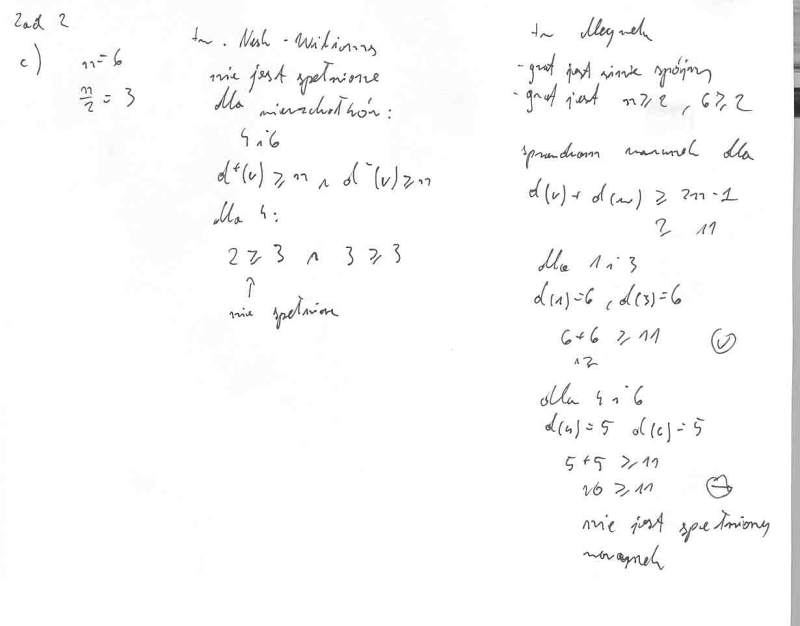 Zad 2
c) n=6
n/2 = 3
tw. Nash-Wiliamsa
nie jest spełnione
dla wierzchołków:
4 i 6
d⁺(v) ≥ n ∧ d⁻(v) ≥ n
dla 4:
2 ≥ 3 ∧ 3 ≥ 3
↑
nie spełnione
tw Meyniela
- graf jest silnie spójny
- graf jest n ≥ 2, 6 ≥ 2
sprawdzam warunek dla
d(v) + d(w) ≥ 2n-1
≥ 11
dla 1 i 3
d(1)=6, d(3)=6
6+6 ≥ 11
12
dla 4 i 6
d(4)=5 d(6)=5
5+5 ≥ 11
10 ≥ 11
nie jest spełniony
warunek